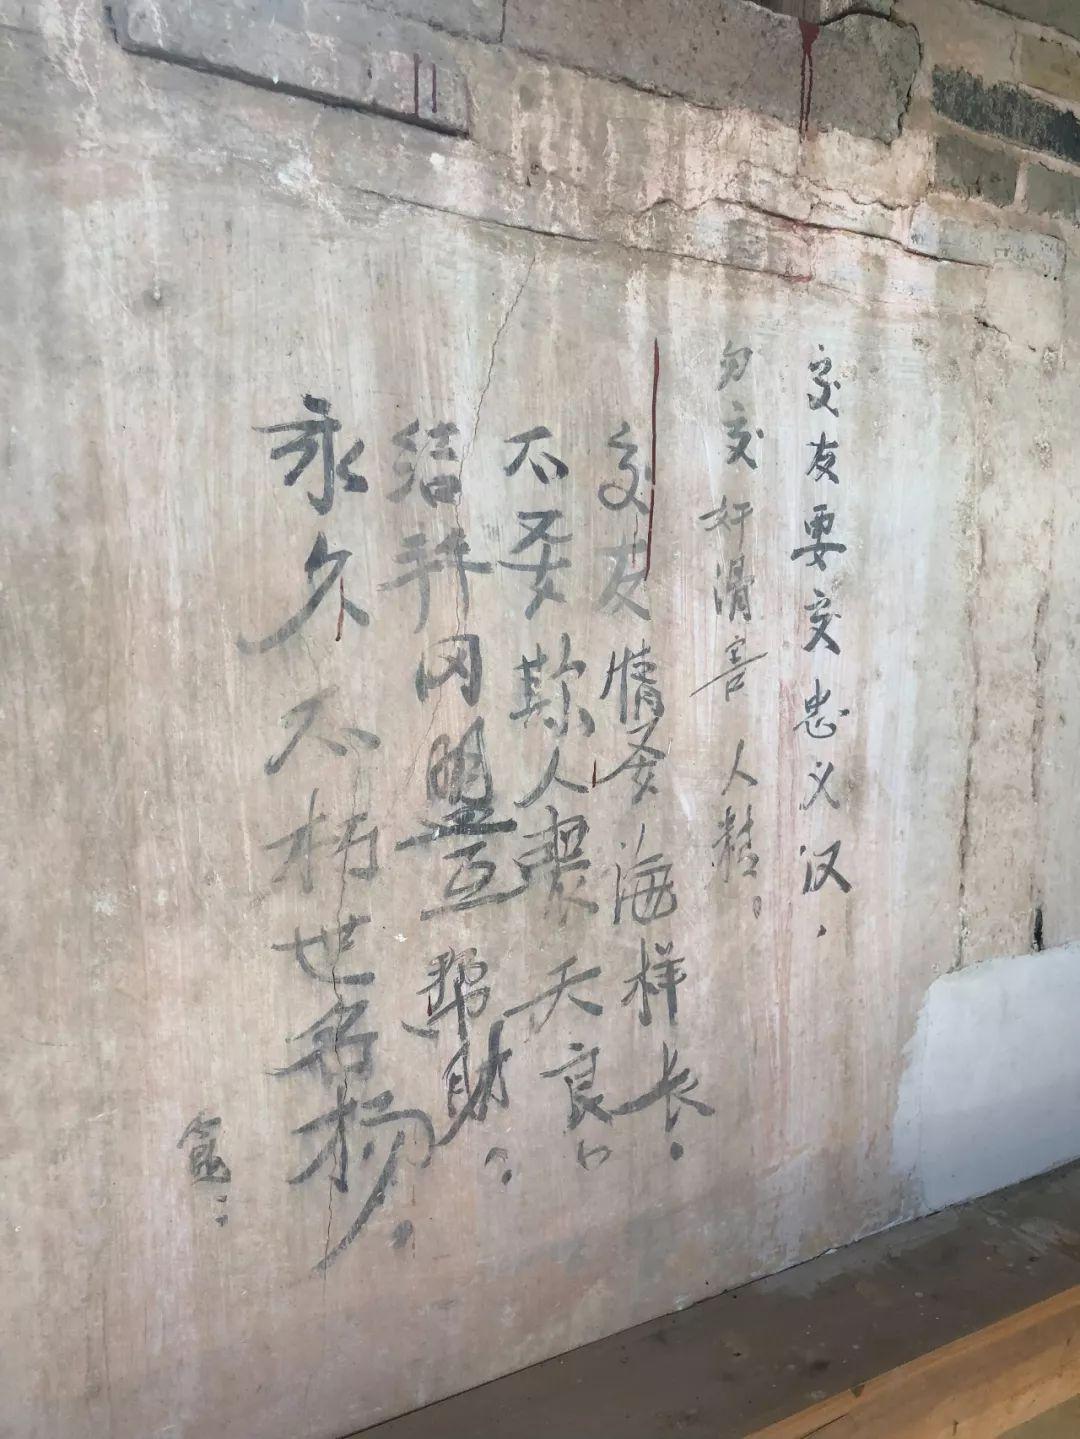 交友要交忠义汉，
勿交奸滑害人精。
交友情要海样长。
不要欺人丧天良，
结拜同盟互帮助。
永久不朽世名扬。